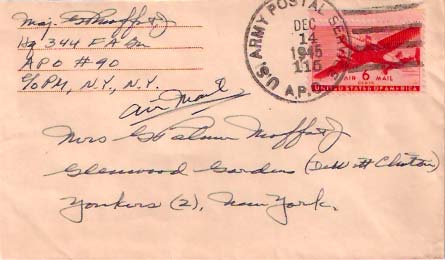 Maj. G P Moffat Jr
Hq 344 F A Bn
APO # 90
c/o PM, N.Y., N.Y.
Air Mail
U.S. ARMY POSTAL SERVICE
DEC
14
1945
115
A.P.O.
AIR 6 MAIL
CENTS
UNITED STATES OF AMERICA
Mrs G Palmer Moffat Jr
Glenwood Gardens (DeWitt Clinton)
Yonkers (2), New York.